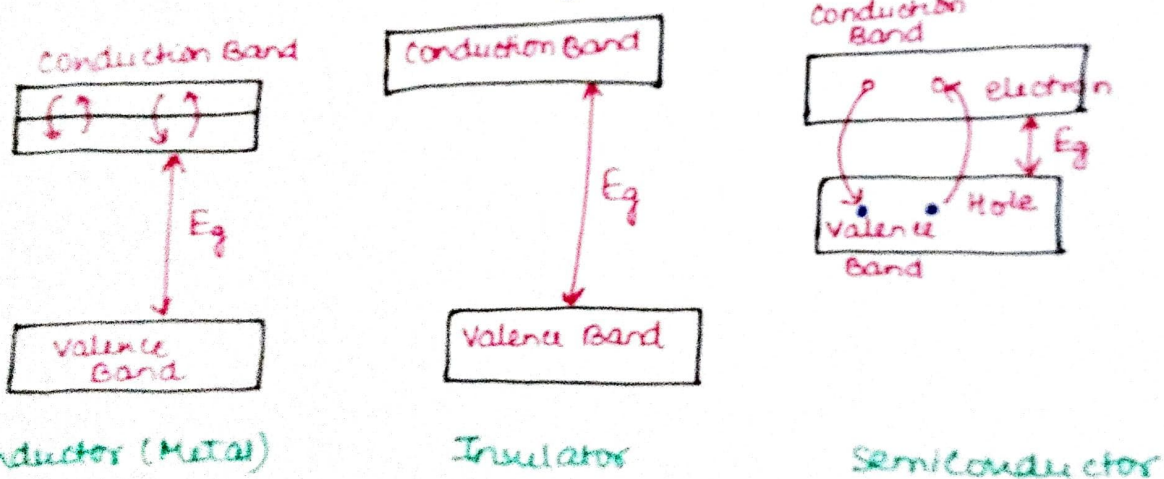 Conduction Band
Eg
Valence
Band
nductor (Metal)
Conduction Band
Eg
Valence Band
Insulator
Conduction
Band
electron
Eg
Hole
Valence
Band
Semiconductor